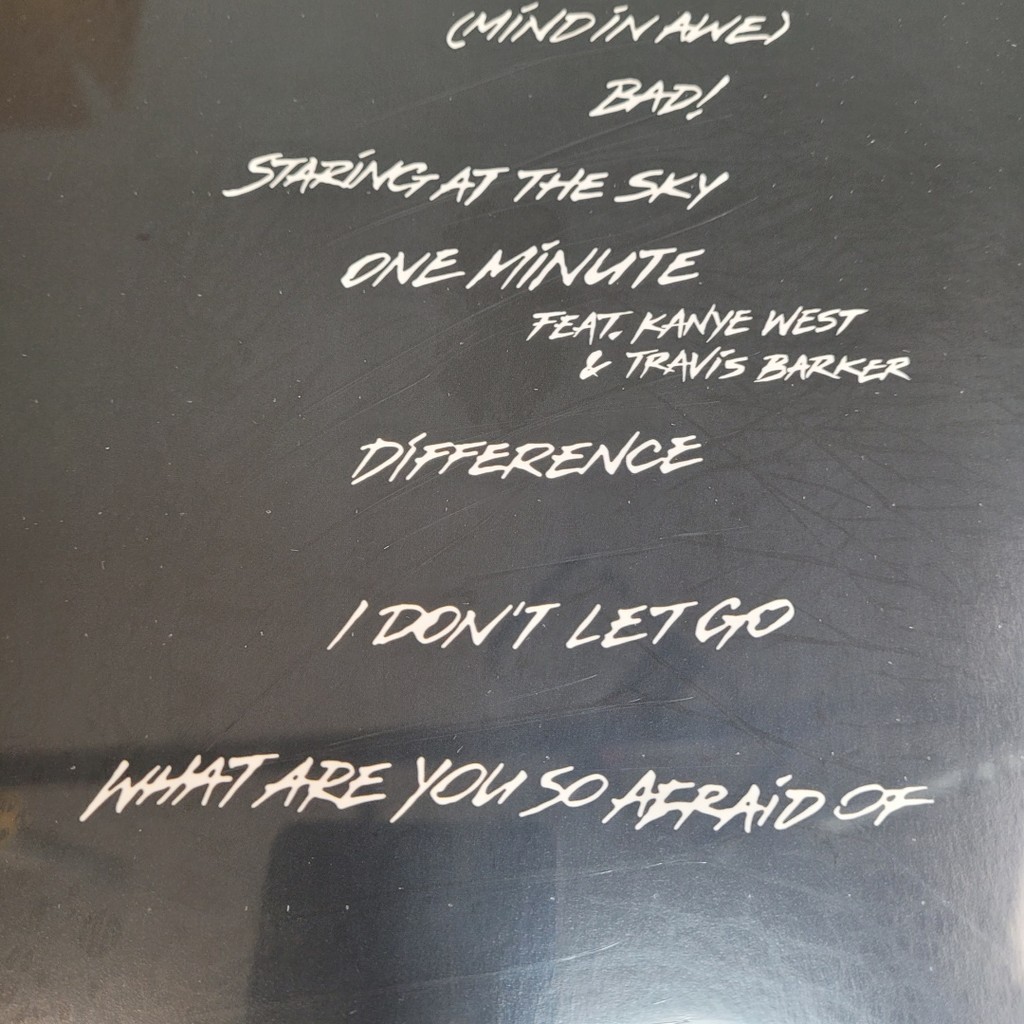 (MiND iN AWE)
BAD!
STARiNG AT THE SKY
ONE MiNUTE
FEAT. KANYE WEST
& TRAViS BARKER
DiFFERENCE
I DON'T LET GO
WHAT ARE YOU SO AFRAiD OF